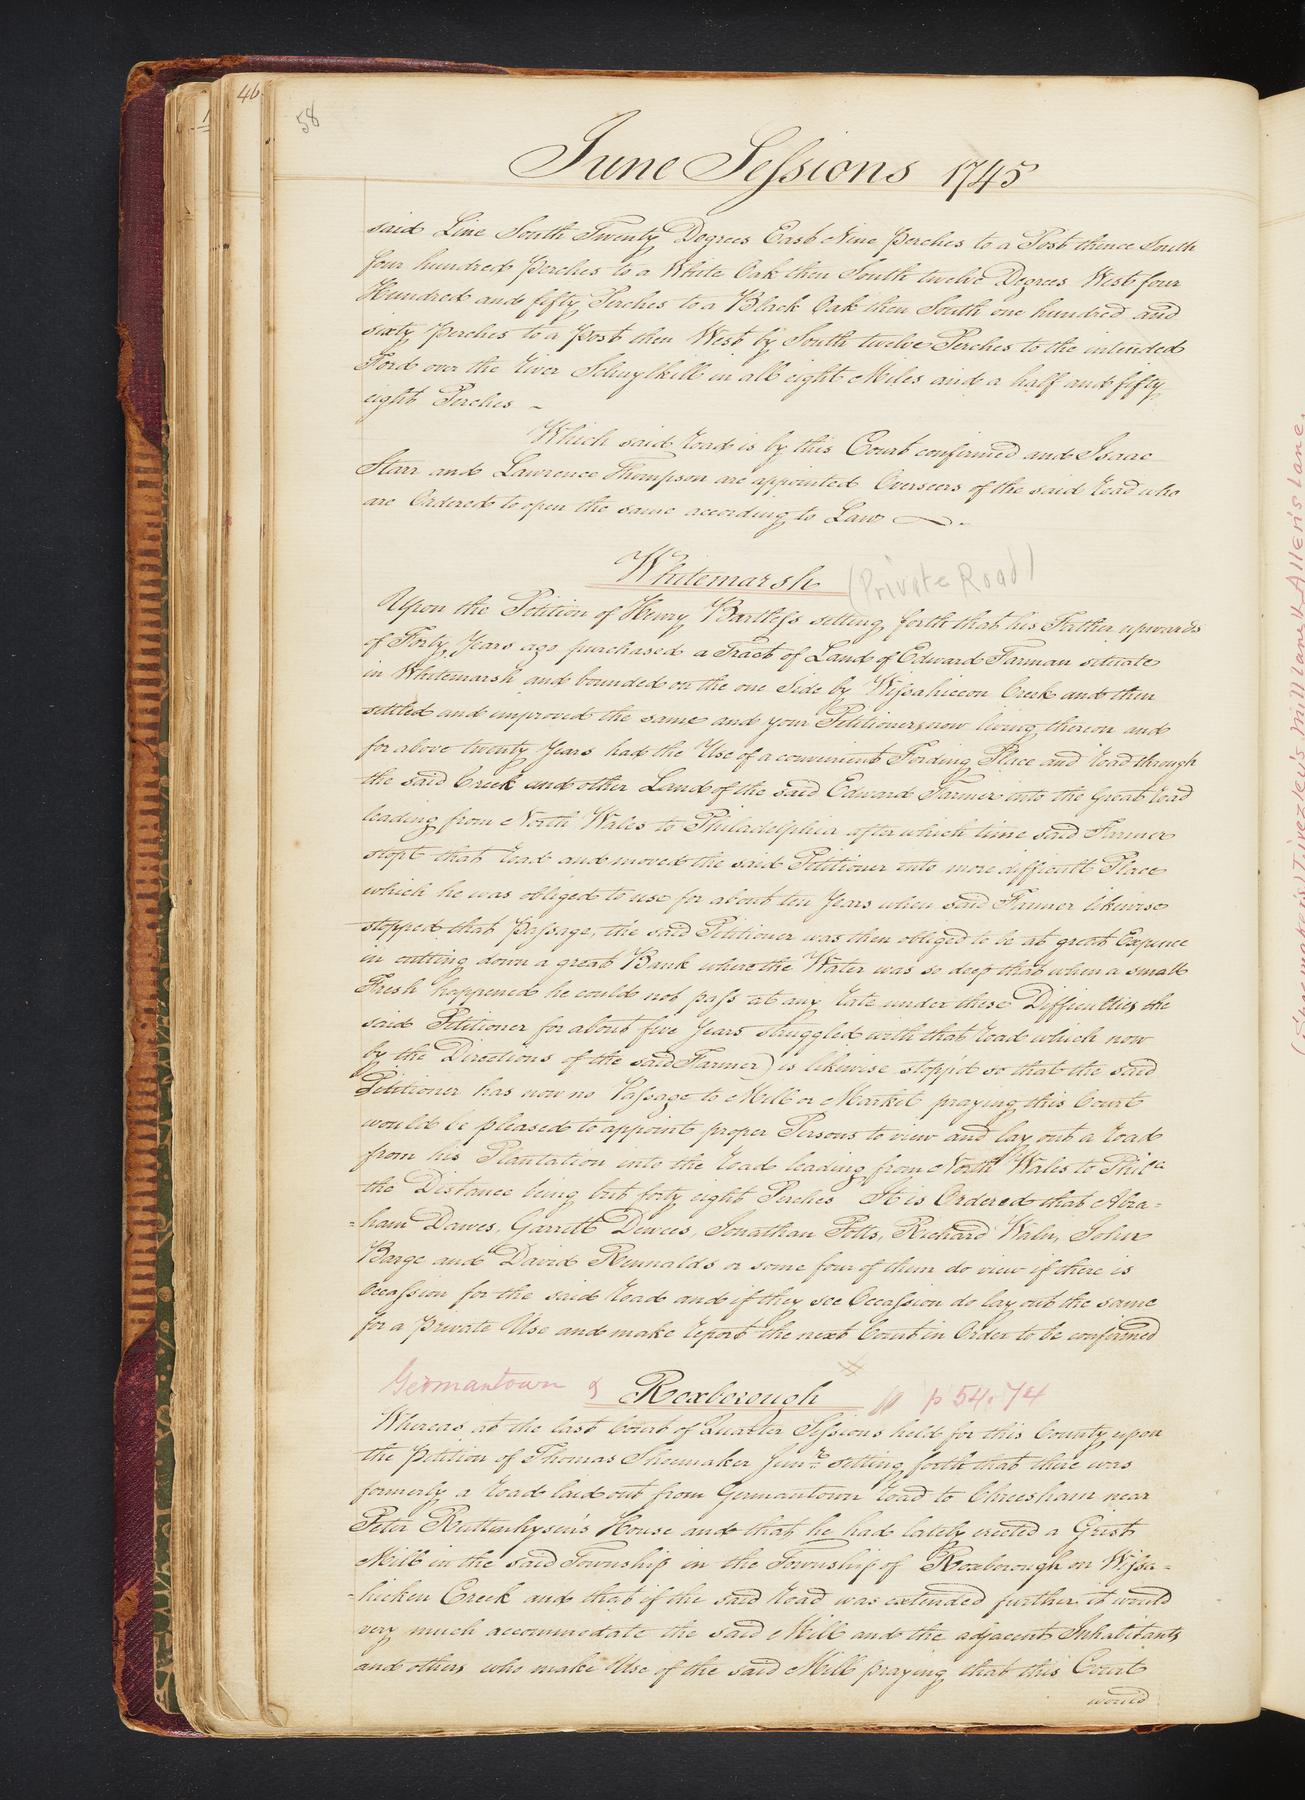 46.
58
June Sessions 1745
said Line South Twenty Degrees East Nine Perches to a Post thence South
four hundred Perches to a White Oak then South twelve Degrees West four
Hundred and fifty Perches to a Black Oak then South one hundred and
sixty Perches to a Post then West by South twelve Perches to the intended
Ford over the River Schuylkill in all eight Miles and a half and fifty
eight Perches
Which said Road is by this Court confirmed and Isaac
Starr and Lawrence Thompson are appointed Overseers of the said Road who
are Ordered to open the same according to Law
Whitemarsh (Private Road)
Upon the Petition of Henry Bartless setting forth that his Father upwards
of Forty Years ago purchased a Tract of Land of Edward Farman situate
in Whitemarsh and bounded on the one Side by Wissahiccon Creek and then
settled and improved the same and your Petitioner now living thereon and
for above twenty Years had the Use of a convenient Fording Place and Road through
the said Creek and other Land of the said Edward Farmer into the Great Road
leading from North Wales to Philadelphia after which time said Farmer
stopt that Road and moved the said Petitioner into more difficult Place
which he was obliged to use for about ten Years when said Farmer likewise
stopped that Passage, the said Petitioner was then obliged to be at great Expence
in cutting down a great Bank where the Water was so deep that when a small
Fresh happened he could not pass at any Rate under these Difficulties the
said Petitioner for about five Years struggled with that Road which now
by the Directions of the said Farmer) is likewise stopp'd so that the said
Petitioner has now no Passage to Mill or Market praying this Court
would be pleased to appoint proper Persons to view and lay out a Road
from his Plantation into the Road leading from North Wales to Phila
the Distance being but forty eight Perches It is Ordered that Abra=
=ham Dawes, Garrett Dewees, Jonathan Potts, Richard Waln, John
Barge and David Rennalds or some four of them do view if there is
Occassion for the said Road and if they see Occassion do lay out the same
for a Private Use and make report the next Court in Order to be confirmed
Germantown & Roxborough p 54. 74
Whereas at the last Court of Quarter Sessions held for this County upon
the Petition of Thomas Shoemaker Junr. setting forth that there was
formerly a Road laid out from Germantown Road to Chreesham near
Peter Ruttenhysen's House and that he had lately erected a Grist
Mill in the said Township in the Township of Roxborough on Wissa=
=hicken Creek and that if the said Road was extended further it would
very much accommodate the said Mill and the adjacent Inhabitants
and others who make Use of the said Mill praying that this Court
would
(Shoemaker's) Livezley's Mill Lane & Allen's Lane.